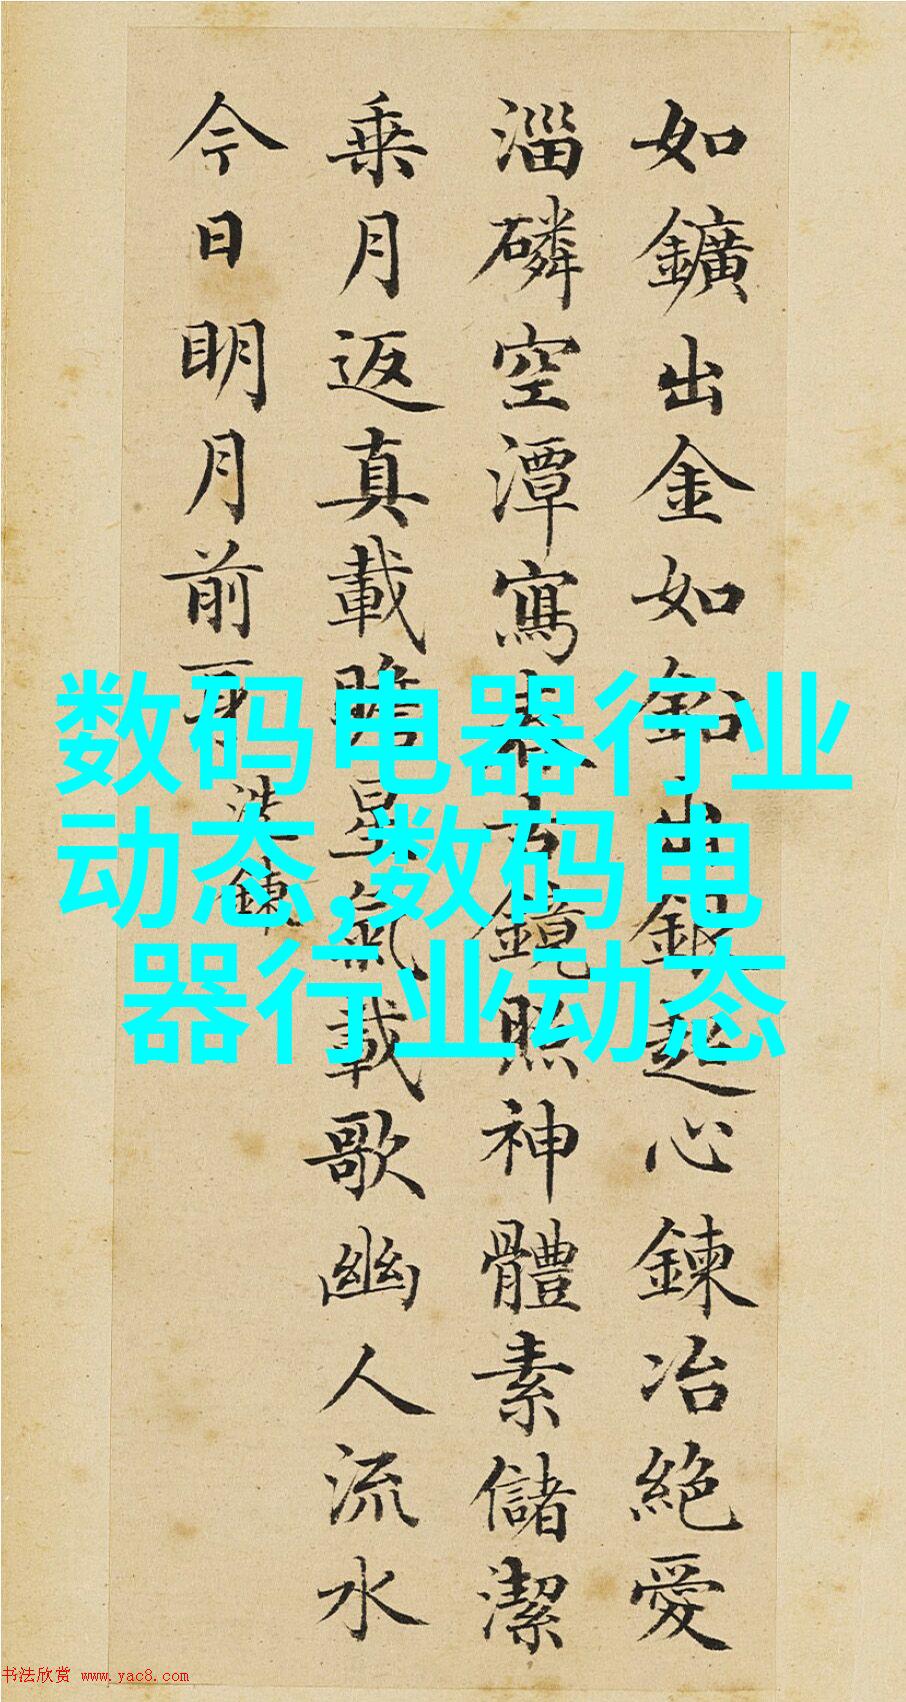 如鑛出金如鉛出銀超心鍊冶絕愛
淄磷空潭寫春古鏡照神體素儲潔
乘月返真載瞻星氣載歌幽人流水
今日明月前身 洗鍊
数码电器行业
动态,数码电
器行业动态
书法欣赏 www.yac8.com